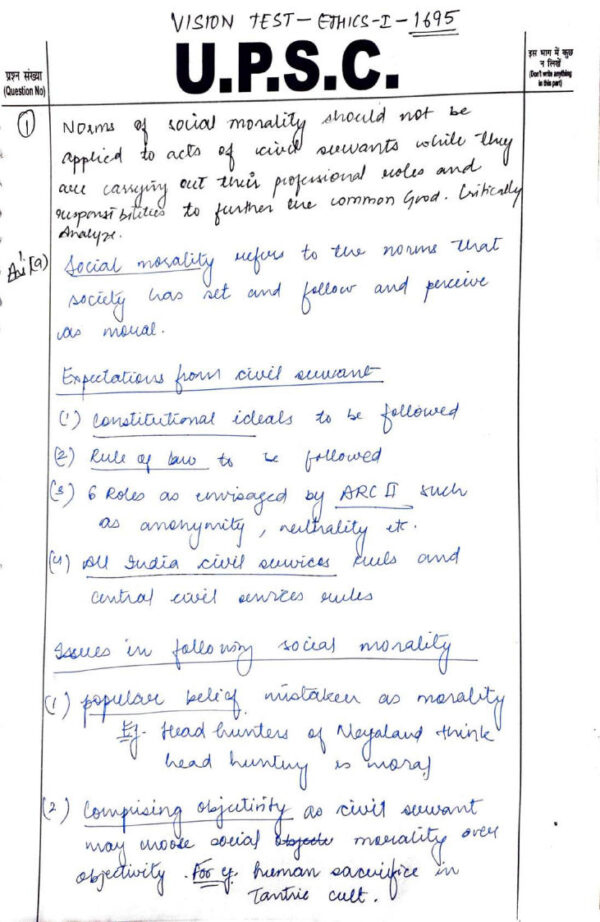 VISION TEST - ETHICS-I - 1695
U.P.S.C.
प्रश्न संख्या
(Question No)
इस भाग में कुछ
न लिखें
(Don't write anything
in this part)
① Norms of social morality should not be
applied to acts of civil servants while they
are carrying out their professional roles and
responsibilities to further the common Good. Critically
Analyze.
Ans 1(a) Social morality refers to the norms that
society has set and follow and perceive
as moral.
Expectations from civil servant
(1) constitutional ideals to be followed
(2) Rule of law to be followed
(3) 6 Roles as envisaged by ARC II such
as anonymity, neutrality etc.
(4) All India civil services rules and
central civil services rules
Issues in following social morality
(1) popular belief mistaken as morality
Eg. Head hunters of Nagaland think
head hunting is moral
(2) Comprising objectivity as civil servant
may choose social morality over
objectivity. For eg. human sacrifice in
Tantric cult.